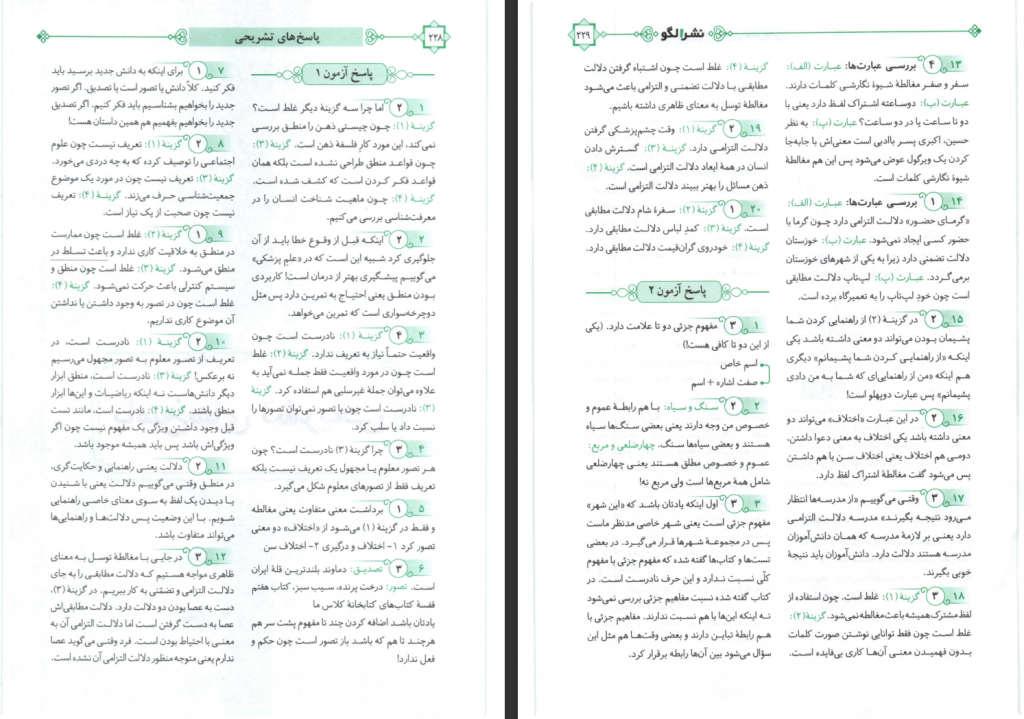 ۲۲۸
پاسخ‌های تشریحی
پاسخ آزمون ۱
۱. ۲ اما چرا سه گزینهٔ دیگر غلط است؟
گزینهٔ (۱): چون چیستی ذهن را منطق بررسی
نمی‌کند، این مورد کار فلسفهٔ ذهن است. گزینهٔ (۳):
چون قواعد منطق طراحی نشده است بلکه همان
قواعد فکر کردن است که کشف شده است.
گزینهٔ (۴): چون ماهیت شناخت انسان را در
معرفت‌شناسی بررسی می‌کنیم.
۲. ۲ اینکه قبل از وقوع خطا باید از آن
جلوگیری کرد شبیه این است که در «علم پزشکی»
می‌گوییم پیشگیری بهتر از درمان است! کاربردی
بودن منطق یعنی احتیاج به تمرین دارد پس مثل
دوچرخه‌سواری است که تمرین می‌خواهد.
۳. ۴ گزینهٔ (۱): نادرست است چون
واقعیت حتماً نیاز به تعریف ندارد. گزینهٔ (۲): غلط
است چون در مورد واقعیت فقط جمله نمی‌آید به
علاوه می‌توان جملهٔ غیرسلبی هم استفاده کرد. گزینهٔ
(۳): نادرست است چون با تصور نمی‌توان تصورها را
نسبت داد یا سلب کرد.
۴. ۳ چرا گزینهٔ (۳) نادرست است؟ چون
هر تصور معلوم یا مجهول یک تعریف نیست بلکه
تعریف فقط از تصورهای معلوم شکل می‌گیرد.
۵. ۱ برداشت معنی متفاوت یعنی مغالطه
و فقط در گزینهٔ (۱) می‌شود از «اختلاف» دو معنی
تصور کرد ۱- اختلاف و درگیری ۲- اختلاف سن
۶. ۳ تصدیق: دماوند بلندترین قلهٔ ایران
است. تصور: درخت پرنده، سیب سبز، کتاب هفتم
قفسهٔ کتاب‌های کتابخانهٔ کلاس ما
یادتان باشد اضافه کردن چند تا مفهوم پشت سر هم
هرچند تا هم که باشد باز تصور است چون حکم و
فعل ندارد!
۷. ۱ برای اینکه به دانش جدید برسید باید
فکر کنید. کلاً دانش یا تصور است یا تصدیق. اگر تصور
جدید را بخواهیم بشناسیم باید فکر کنیم. اگر تصدیق
جدید را بخواهیم بفهمیم هم همین داستان هست!
۸. ۲ گزینهٔ (۱): تعریف نیست چون علوم
اجتماعی را توصیف کرده که به چه دردی می‌خورد.
گزینهٔ (۳): تعریف نیست چون در مورد یک موضوع
جمعیت‌شناسی حرف می‌زند. گزینهٔ (۴): تعریف
نیست چون صحبت از یک نیاز است.
۹. ۱ گزینهٔ (۲): غلط است چون ممارست
در منطق به خلاقیت کاری ندارد و باعث تسلط در
منطق می‌شود. گزینهٔ (۳): غلط است چون منطق و
سیستم کنترلی باعث حرکت نمی‌شود. گزینهٔ (۴):
غلط است چون در تصور به وجود داشتن یا نداشتن
آن موضوع کاری نداریم.
۱۰. ۲ گزینهٔ (۱): نادرست است، در
تعریف از تصور معلوم به تصور مجهول می‌رسیم
نه برعکس! گزینهٔ (۳): نادرست است، منطق ابزار
دیگر دانش‌هاست نه اینکه ریاضیات و این‌ها ابزار
منطق باشند. گزینهٔ (۴): نادرست است، مانند نست
قبل وجود داشتن ویژگی یک مفهوم نیست چون اگر
ویژگی‌اش باشد پس باید همیشه موجود باشد.
۱۱. ۲ دلالت یعنی راهنمایی و حکایت‌گری،
در منطق وقتی می‌گوییم دلالت یعنی با شنیدن
یا دیدن یک لفظ به سوی معنای خاصی راهنمایی
شویم. با این وضعیت پس دلالت‌ها و راهنمایی‌ها
می‌تواند متفاوت باشد.
۱۲. ۳ در جایی با مغالطهٔ توسل به معنای
ظاهری مواجه هستیم که دلالت مطابقی را به جای
دلالت التزامی و تضمّنی به کار ببریم. در گزینهٔ (۳)،
دست به عصا بودن دو دلالت دارد. دلالت مطابقی‌اش
عصا به دست گرفتن است اما دلالت التزامی آن به
معنی با احتیاط بودن است. فرد وقتی می‌گوید عصا
ندارم یعنی متوجه منظور دلالت التزامی آن نشده است.
نشر الگو
۲۲۹
۱۳. ۴ بررسی عبارت‌ها: عبارت (الف):
سفر و صفر مغالطهٔ شیوهٔ نگارشی کلمات دارند.
عبارت (ب): دوساعته اشتراک لفظ دارد یعنی با
دو تا ساعت یا در دو ساعت؟ عبارت (پ): به نظر
حسین، اکبری پسر باادبی است معنی‌اش با جابه‌جا
کردن یک ویرگول عوض می‌شود پس این هم مغالطهٔ
شیوهٔ نگارشی کلمات است.
۱۴. ۱ بررسی عبارت‌ها: عبارت (الف):
«گرمای حضور» دلالت التزامی دارد چون گرما با
حضور کسی ایجاد نمی‌شود. عبارت (ب): خوزستان
دلالت تضمنی دارد زیرا به یکی از شهرهای خوزستان
برمی‌گردد. عبارت (پ): لپ‌تاپ دلالت مطابقی
است چون خودِ لپ‌تاپ را به تعمیرگاه برده است.
۱۵. ۲ در گزینهٔ (۲) از راهنمایی کردن شما
پشیمان بودن می‌تواند دو معنی داشته باشد یکی
اینکه «از راهنمایی کردن شما پشیمانم» دیگری
هم اینکه «من از راهنمایی‌ای که شما به من دادی
پشیمانم» پس عبارت دوپهلو است!
۱۶. ۲ در این عبارت «اختلاف» می‌تواند دو
معنی داشته باشد یکی اختلاف به معنی دعوا داشتن،
دومی هم اختلاف یعنی اختلاف سن با هم داشتن
پس می‌شود گفت مغالطهٔ اشتراک لفظ دارد.
۱۷. ۳ وقتی می‌گوییم «از مدرسه‌ها انتظار
می‌رود نتیجه بگیرند» مدرسه دلالت التزامی
دارد یعنی بر لازمهٔ مدرسه که همان دانش‌آموزان
مدرسه هستند دلالت دارد. دانش‌آموزان باید نتیجهٔ
خوبی بگیرند.
۱۸. ۳ گزینهٔ (۱): غلط است. چون استفاده از
لفظ مشترک همیشه باعث مغالطه نمی‌شود. گزینهٔ (۲):
غلط است چون فقط توانایی نوشتن صورت کلمات
بدون فهمیدن معنی آن‌ها کاری بی‌فایده است.
گزینهٔ (۴): غلط است چون اشتباه گرفتن دلالت
مطابقی با دلالت تضمنی و التزامی باعث می‌شود
مغالطهٔ توسل به معنای ظاهری داشته باشیم.
۱۹. ۲ گزینهٔ (۱): وقت چشم‌پزشکی گرفتن
دلالت التزامی دارد. گزینهٔ (۳): گسترش دادن
انسان در همهٔ ابعاد دلالت التزامی است. گزینهٔ (۴):
ذهن مسائل را بهتر ببیند دلالت التزامی است.
۲۰. ۱ گزینهٔ (۲): سفرهٔ شام دلالت مطابقی
است. گزینهٔ (۳): کمد لباس دلالت مطابقی دارد.
گزینهٔ (۴): خودروی گران‌قیمت دلالت مطابقی دارد.
پاسخ آزمون ۲
۱. ۳ مفهوم جزئی دو تا علامت دارد. (یکی
از این دو تا کافی هست!)
اسم خاص
صفت اشاره + اسم
۲. ۲ سنگ و سیاه: با هم رابطهٔ عموم و
خصوص من وجه دارند یعنی بعضی سنگ‌ها سیاه
هستند و بعضی سیاه‌ها سنگ. چهارضلعی و مربع:
عموم و خصوص مطلق هستند یعنی چهارضلعی
شامل همهٔ مربع‌ها است ولی مربع نه!
۳. ۳ اول اینکه یادتان باشد که «این شهر»
مفهوم جزئی است یعنی شهر خاصی مدنظر ماست
پس در مجموعهٔ شهرها قرار می‌گیرد. در بعضی
تست‌ها و کتاب‌ها گفته شده که مفهوم جزئی با مفهوم
کلّی نسبت ندارد و این حرف نادرست است. در
کتاب گفته شده نسبت مفاهیم جزئی بررسی نمی‌شود
نه اینکه این‌ها با هم نسبت ندارند. مفاهیم جزئی با
هم رابطهٔ تباین دارند و بعضی وقت‌ها هم مثل این
سؤال می‌شود بین آن‌ها رابطه برقرار کرد.